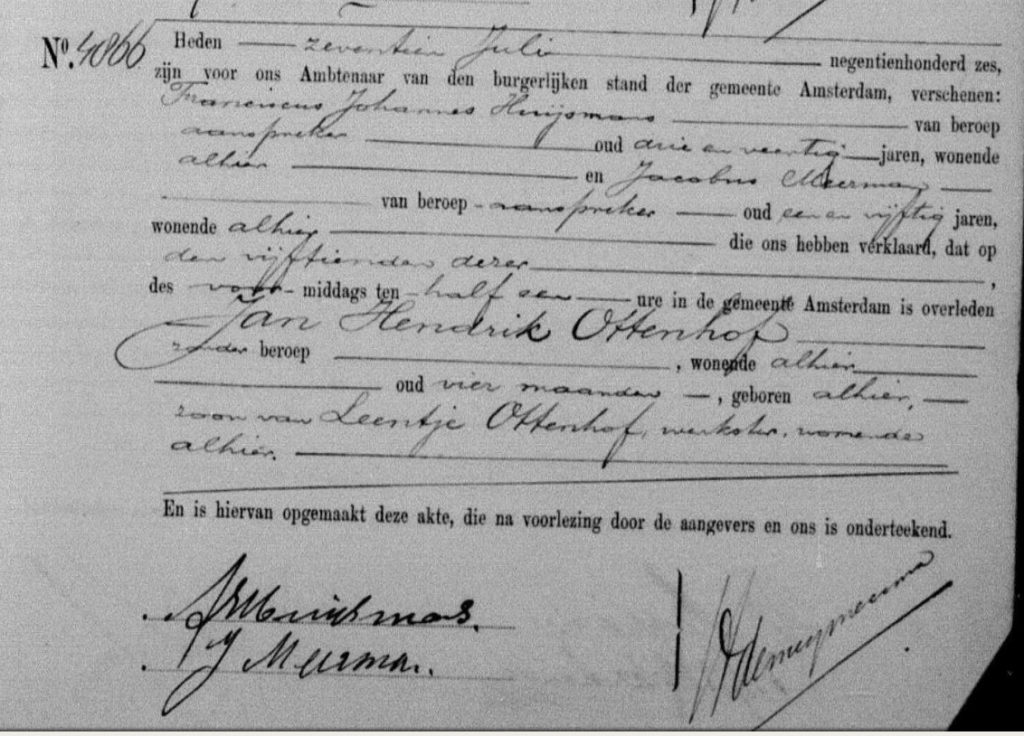 Nº. 4866 Heden zeventien Juli negentienhonderd zes,
zijn voor ons Ambtenaar van den burgerlijken stand der gemeente Amsterdam, verschenen:
Franciscus Johannes Huijsmans van beroep
aanspreker oud drie en veertig jaren, wonende
alhier en Jacobus Meerman
van beroep aanspreker oud een en vijftig jaren,
wonende alhier die ons hebben verklaard, dat op
den vijftienden dezer,
des voor middags ten half een ure in de gemeente Amsterdam is overleden
Jan Hendrik Ottenhof
zonder beroep , wonende alhier
oud vier maanden , geboren alhier,
zoon van Leentje Ottenhof, werkster, wonende
alhier.
En is hiervan opgemaakt deze akte, die na voorlezing door de aangevers en ons is onderteekend.
Huijsmans.
J Meerman.